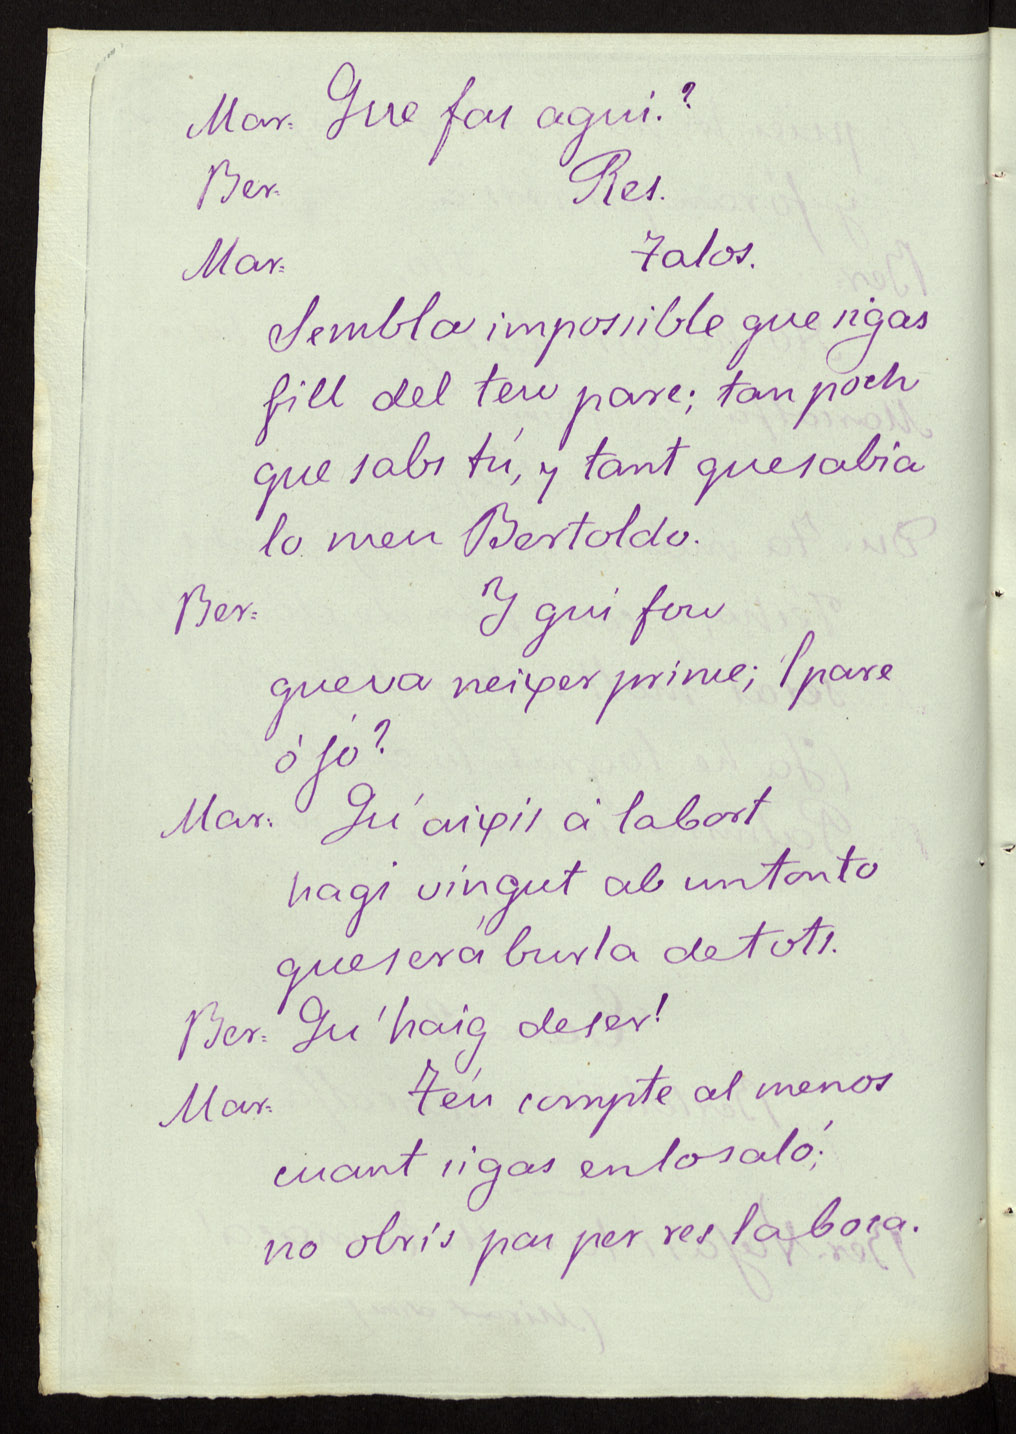 Mar: Que fas aqui.?
Ber: Res.
Mar: Talós.
Sembla impossible que sigas
fill del teu pare; tan poch
que sabs tú, y tant que sabia
lo meu Bertoldo.
Ber: Y qui fou
que va neixer prime; l pare
ó jó?
Mar: Qu' aixis á la bort
hagi vingut ab un tonto
que será burla de tots.
Ber: Qu' haig de ser!
Mar: Téu compte al menos
cuant sigas en lo saló;
no obris pas per res la boca.